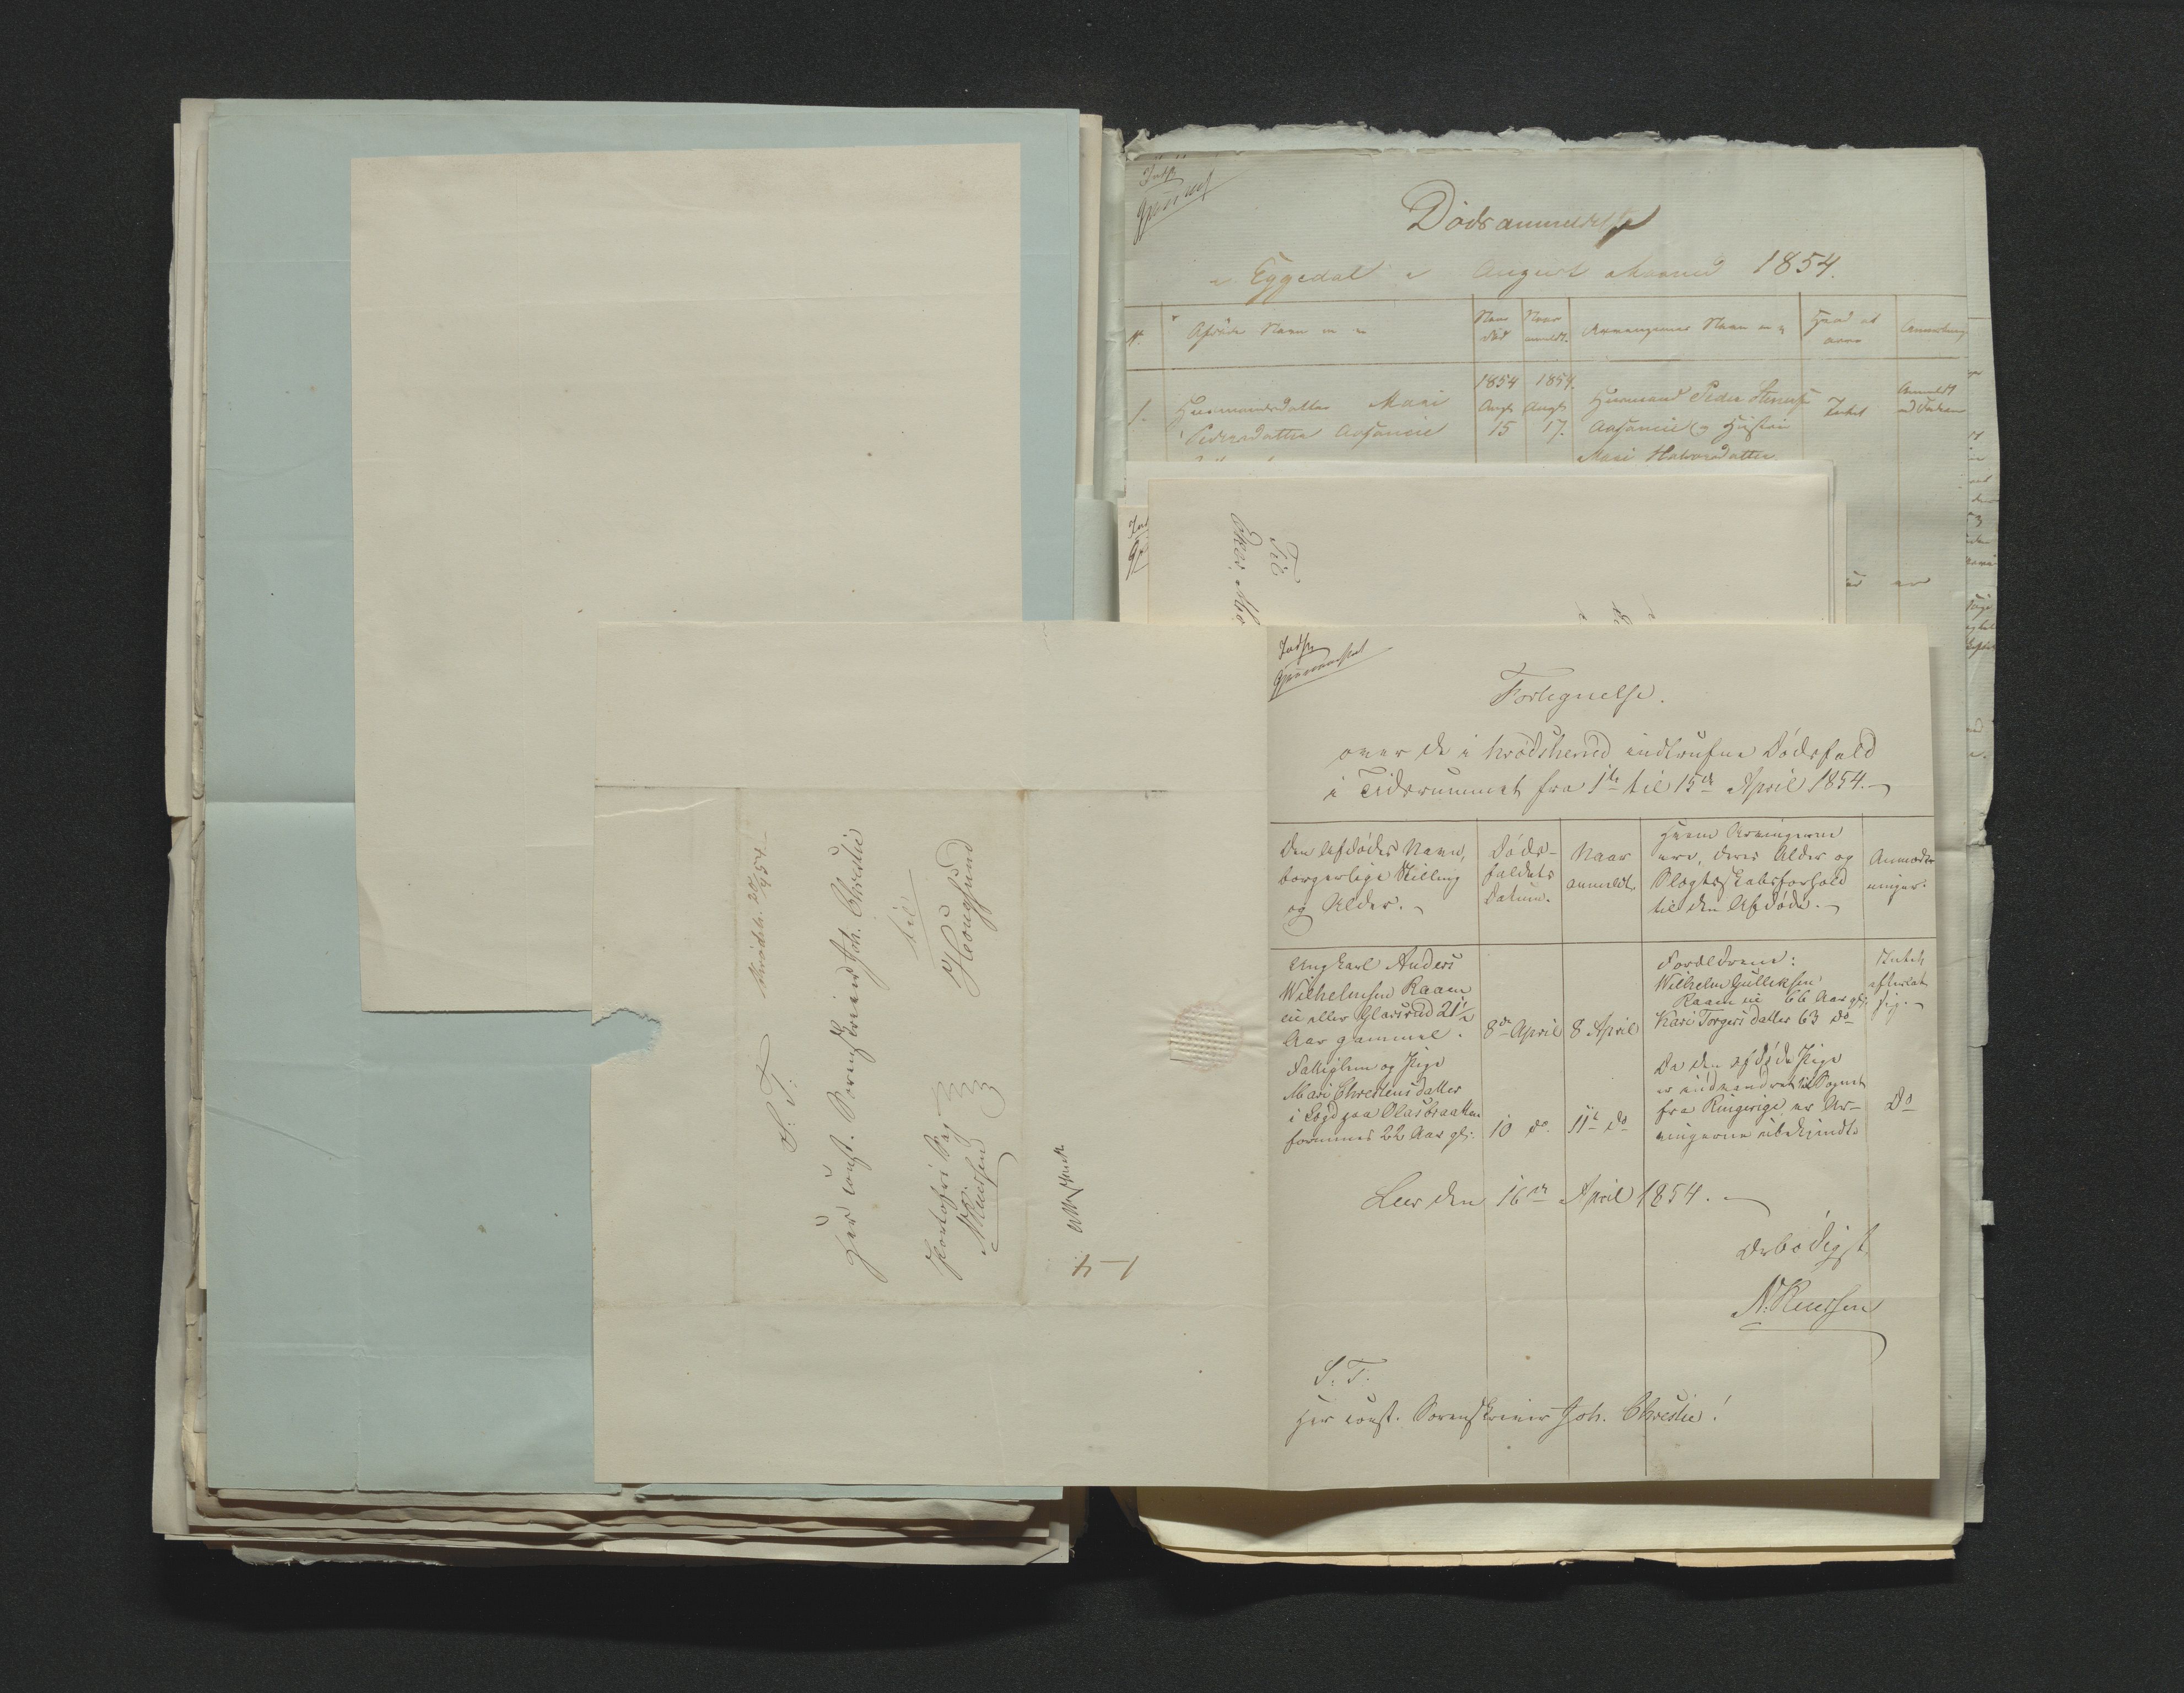 Dødsanmeldelse
i Eggedal i August Maaned 1854.
N. Afdødes Navn m m Naar død Naar anmeldt. Arvingernes Navn m m Hvad at arve Anmærkning
1854 1854.
1. Huusmandsdatter Mari Augt Augt Huusmand Peder Intet Anmeldt
Pedersdatter 15 17. og Hustru
Mari Halvorsdatter
Til
Fortegnelse.
over de i Krødsherred indtrufne Dødsfald
i Tidsrummet fra 1te til 15de April 1854.
Den Afdødes Navn, borgerlige Stilling og Alder.
Dødsfaldets Datum.
Naar anmeldt.
Hvem Arvingerne ere, deres Alder og Slægtskabsforhold til den Afdøde.
Anmærkninger.
Ungkarl Anders
Wilhelmsen Raam
eie eller Glarsrud 21½
Aar gammel.
8de April
8 April
Forældrene:
Wilhelm Gulliksen
Raam eie 66 Aar gl.
Kari Torgersdatter 63 do
Intet
efterladt
sig.
Fattiglem og Pige
Mari Christensdatter
i Lægd paa Olasbraatten
formenes 22 Aar gl.
10 do.
11te do
Da den afdøde Pige
er indvandret til Sognet
fra Ringerige er Ar-
vingerne ubekjendt.
Do
Leer den 16de April 1854.
Ærbødigst
N. Knutsen
S. T.
Herr const. Sorenskriver Joh. Christie!
Krødsh. 20/4 54
S. T.
Herr const. Sorenskriver Joh. Christie
til
Hougsund
Portofri Sag
N Knutsen